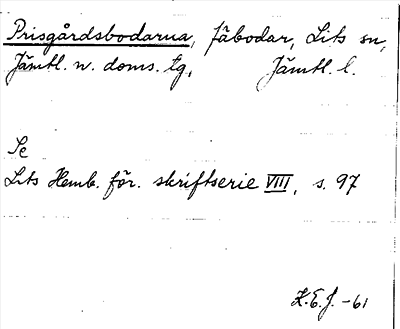 Prisgårdsbodarna, fäbodar, Lits sn,
Jämtl. n. doms. tg, Jämtl. l.
Se
Lits Hemb. för. skriftserie VIII, s. 97
K.E.J. -61